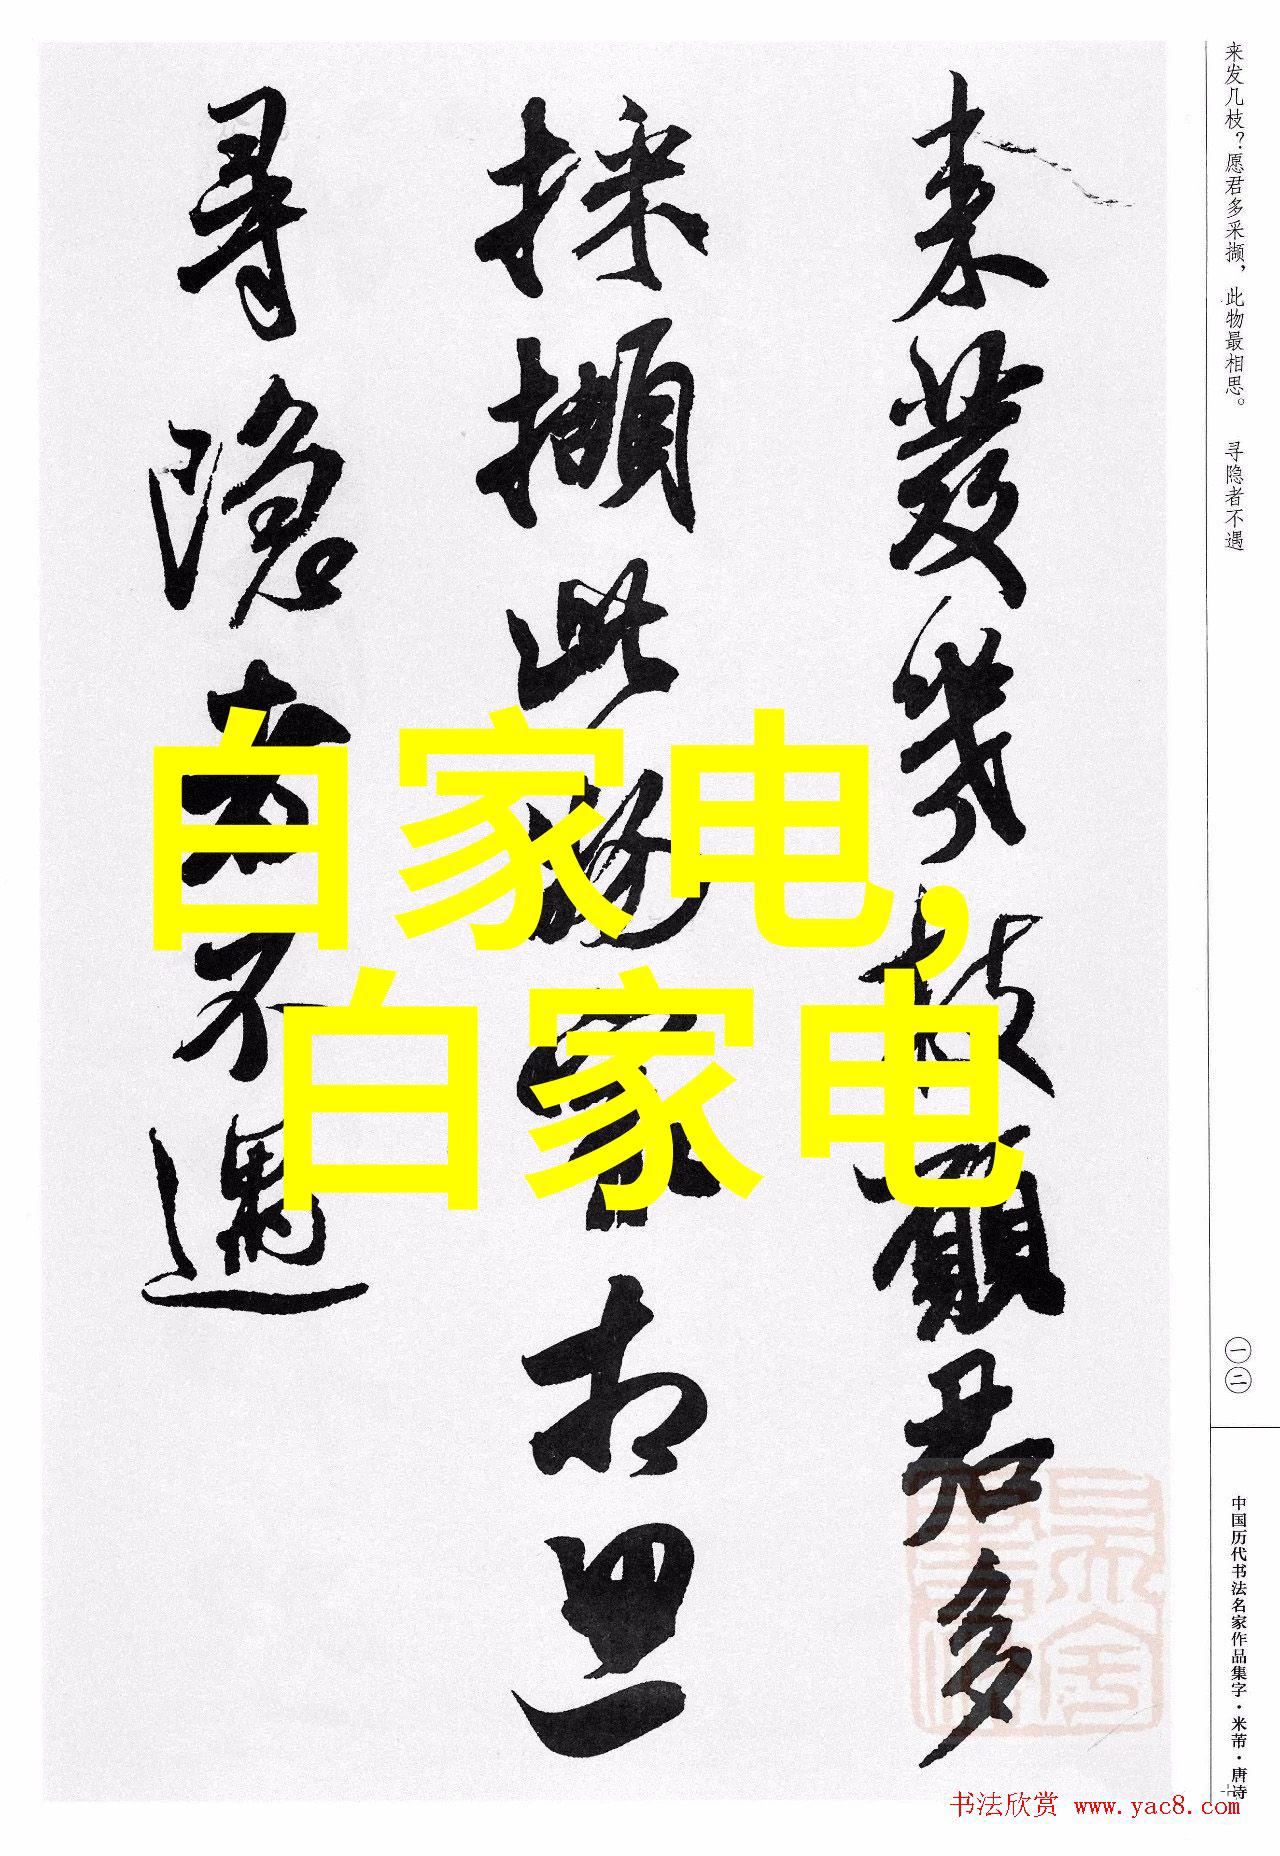 来发几枝？愿君多采撷，此物最相思。 寻隐者不遇
一二
中国历代书法名家作品集字·米芾·唐诗
来發幾枝願君多
採擷此物最相思
尋隱者不遇
白家电,
白家电
书法欣赏 www.yac8.com